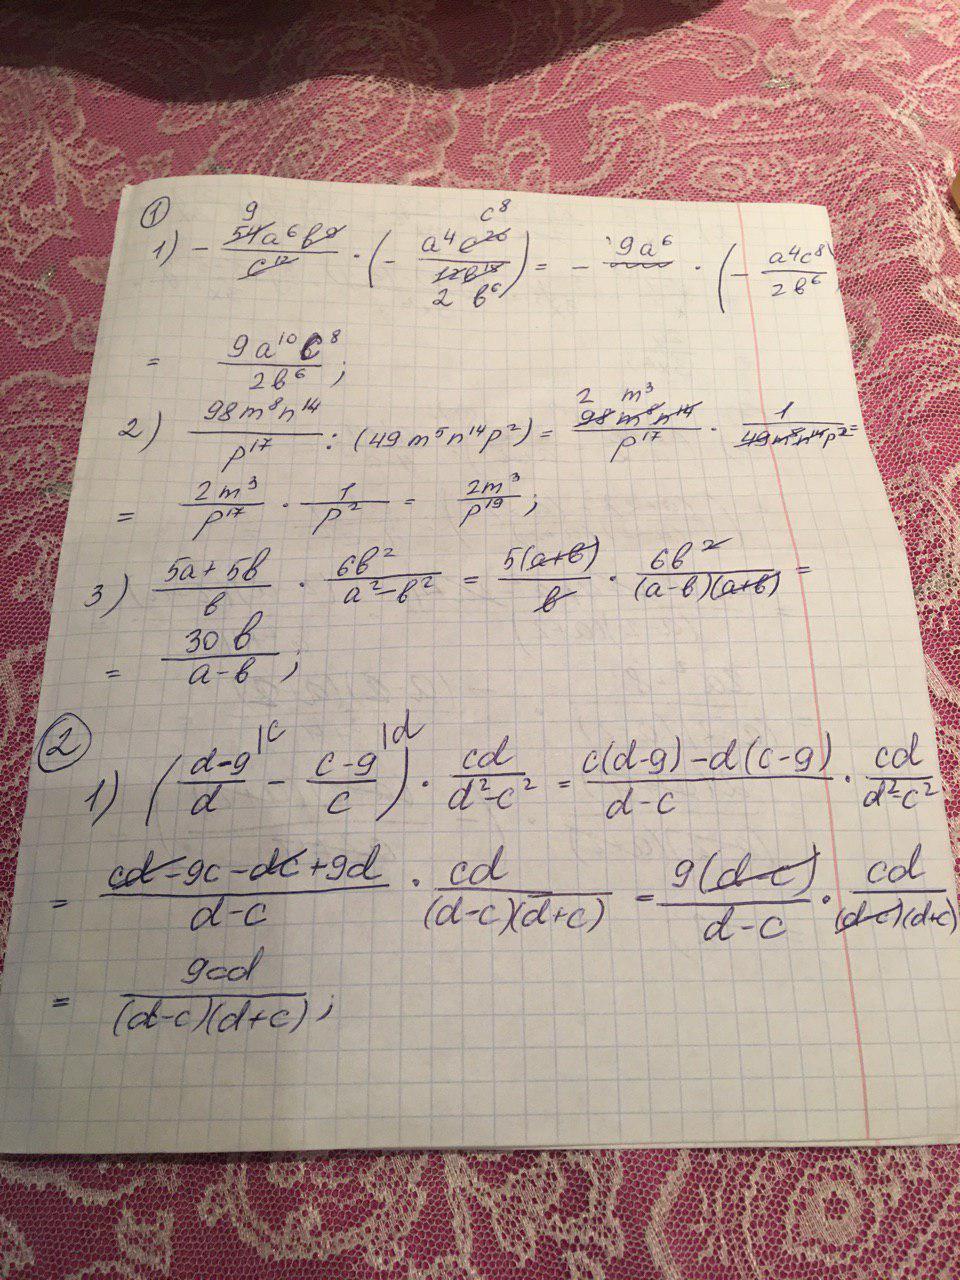 ①
1) - 54a⁶b⁹/c¹² · (- a⁴c²⁰/12b¹⁵) = - 9a⁶ · (- a⁴c⁸/2b⁶)
= 9a¹⁰c⁸/2b⁶ ;
2) 98m⁸n¹⁴/p¹⁷ : (49m⁵n¹⁴p²) = 98m⁸n¹⁴/p¹⁷ · 1/49m⁵n¹⁴p² =
= 2m³/p¹⁷ · 1/p² = 2m³/p¹⁹ ;
3) 5a+5b/b · 6b²/a²-b² = 5(a+b)/b · 6b²/(a-b)(a+b) =
= 30b/a-b ;
②
1) (d-9/d |c - c-9/c |d) · cd/d²-c² = c(d-9)-d(c-9)/d-c · cd/d²-c²
= cd-9c-dc+9d/d-c · cd/(d-c)(d+c) = 9(d-c)/d-c · cd/(d-c)(d+c)
= 9cd/(d-c)(d+c) ;